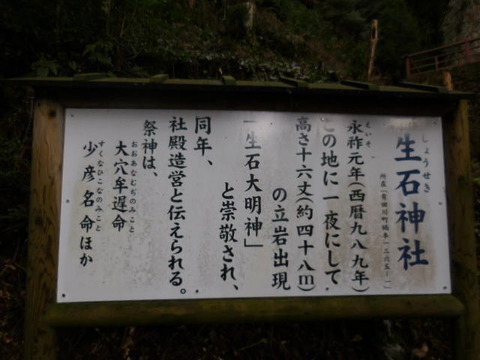 しょうせき
生石神社
えいそ
永祚元年(西暦九八九年)
この地に一夜にして
高さ十六丈(約四十八m)
の立岩出現
「生石大明神」
と崇敬され、
同年、
社殿造営と伝えられる。
祭神は、
おおあなむぢのみこと
大穴牟遅命
すくなひこなのみこと
少彦名命ほか